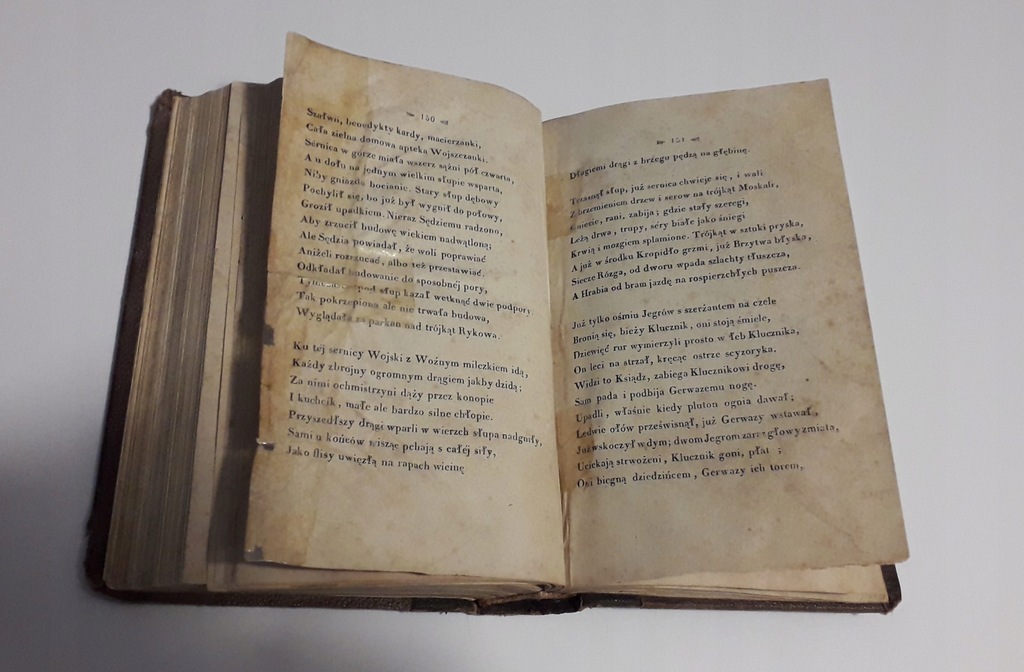 150
Szałwii, benedykty kardy, macierzanki,
Cała zielna domowa apteka Wojszczanki.
Sernica w górze miała wszerz sążni pół czwarta,
A u dołu na jednym wielkim słupie wsparta,
Niby gniazdo bocianie. Stary słup dębowy
Pochylił się, bo już był wygnił do połowy,
Groził upadkiem. Nieraz Sędziemu radzono,
Aby zrzucił budowę wiekiem nadwątloną;
Ale Sędzia powiadał, że woli poprawiać
Aniżeli rozrzucać, albo też przestawiać.
Odkładał budowanie do sposobnéj pory,
Tymczasem pod słup kazał wetknąć dwie podpory.
Tak pokrzepiona ale nie trwała budowa,
Wyglądała za parkan nad trójkąt Rykowa.
Ku téj sernicy Wojski z Woźnym milczkiem idą,
Każdy zbrojny ogromnym drągiem jakby dzidą;
Za nimi ochmistrzyni dąży przez konopie
I kuchcik, małe ale bardzo silne chłopie.
Przyszedłszy drągi wparli w wierzch słupa nadgniły,
Sami u końców wisząc pchają s całéj siły,
Jako flisy uwięzłą na rapach wicinę
151
Długiemi drągi z brzego pędzą na głębinę.
Trzasnął słup, już sernica chwieje się, i wali
Z brzemieniem drzew i serow na trójkąt Moskali,
Gniecie, rani, zabija; gdzie stały szeregi,
Leżą drwa, trupy, séry białe jako śniegi
Krwią i mozgiem splamione. Trójkąt w sztuki pryska,
A już w środku Kropidło grzmi, już Brzytwa błyska,
Siecze Rózga, od dworu wpada szlachty tłuszcza,
A Hrabia od bram jazdę na rospierzchłych puszcza.
Już tylko ośmiu Jegrów s szerżantem na czele
Bronią się, bieży Klucznik, oni stoją śmiele,
Dziewięć rur wymierzyli prosto w łeb Klucznika,
On leci na strzał, kręcąc ostrze scyzoryka.
Widzi to Ksiądz, zabiega Klucznikowi drogę,
Sam pada i podbija Gerwazemu nogę.
Upadli, właśnie kiedy pluton ognia dawał;
Ledwie ołów prześwisnął, już Gerwazy wstawał,
Już wskoczył w dym; dwom Jegrom zaraz głowy zmiata,
Uciekają strwożeni, Klucznik goni, płata;
Oni biegną dziedzińcem, Gerwazy ich torem,